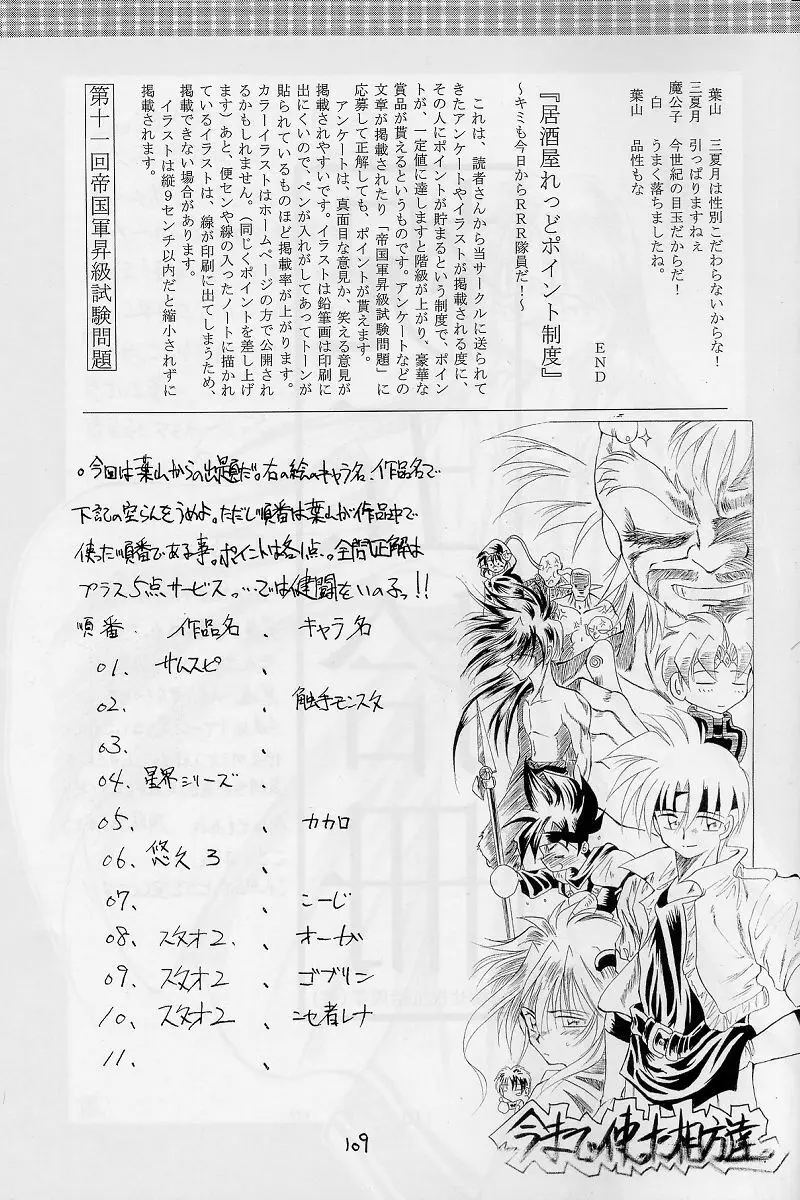 葉山　三夏月は性別こだわらないからな！
三夏月　引っぱりますねぇ
魔公子　今世紀の目玉だからだ！
白　うまく落ちましたね。
葉山　品性もな
END
『居酒屋れっどポイント制度』
～キミも今日からＲＲＲ隊員だ！～
これは、読者さんから当サークルに送られて
きたアンケートやイラストが掲載される度に、
その人にポイントが貯まるという制度で、ポイン
トが、一定値に達しますと階級が上がり、豪華な
賞品が貰えるというものです。アンケートなどの
文章が掲載されたり「帝国軍昇級試験問題」に
応募して正解しても、ポイントが貰えます。
アンケートは、真面目な意見か、笑える意見が
掲載されやすいです。イラストは鉛筆画は印刷に
出にくいので、ペンが入れがしてあってトーンが
貼られているものほど掲載率が上がります。
カラーイラストはホームページの方で公開され
るかもしれません。（同じくポイントを差し上げ
ます）あと、便センや線の入ったノートに描かれ
ているイラストは、線が印刷に出てしまうため、
掲載できない場合があります。
イラストは縦９センチ以内だと縮小されずに
掲載されます。
第十一回帝国軍昇級試験問題
。今回は葉山からの出題だ。右の絵のキャラ名、作品名で
下記の空らんをうめよ。ただし順番は葉山が作品中で
使った順番である事。ポイントは各1点。全問正解は
プラス5点サービス。…では健闘をいのるっ!!
順番．作品名、キャラ名
01. サムスピ、
02.　、触手モンスタ
03.　、
04. 星界シリーズ、
05.　、カカロ
06. 悠久3、
07.　、こーじ
08. スタオ2、オーガ
09. スタオ2、ゴブリン
10. スタオ2、ニセ者レナ
11.　、
今まで使った相方達
109